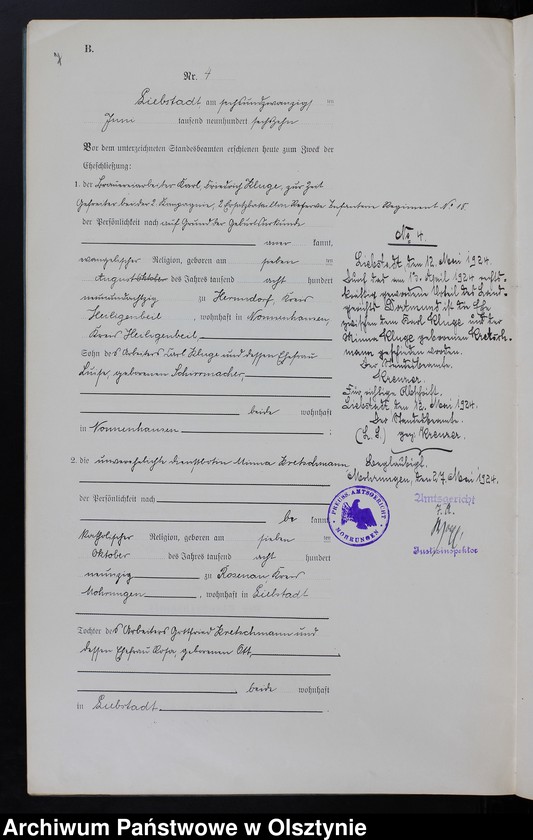 B.
Nr. 4
Liebstadt, am sechsundzwanzigsten
Juni tausend neunhundert sechzehn
Vor dem unterzeichneten Standesbeamten erschienen heute zum Zweck der
Eheschließung:
1. der Brauereiarbeiter Karl Friedrich Kluge, zur Zeit
Gefreiter bei der 2 Kompagnie, 2 Ersatzbataillon Reserve Infanterie Regiment No 18
der Persönlichkeit nach auf Grund der Geburtsurkunde
aner kannt,
evangelischer Religion, geboren am sieben ten
August Oktober des Jahres tausend acht hundert
neunundachtzig zu Hermsdorf, Kreis
Heiligenbeil, wohnhaft in Nonnenhausen,
Kreis Heiligenbeil
Sohn des Arbeiters Karl Kluge und dessen Ehefrau
Luise, geborenen Schirrmacher,
beide wohnhaft
in Nonnenhausen ;
2. die unverehelichte Dienstbotin Minna Kretschmann
der Persönlichkeit nach
be kannt
katholischer Religion, geboren am sieben ten
Oktober des Jahres tausend acht hundert
neunzig zu Rosenau Kreis
Mohrungen, wohnhaft in Liebstadt
Tochter des Arbeiters Gottfried Kretschmann und
dessen Ehefrau Rosa, geborenen Ott,
beide wohnhaft
in Liebstadt.
No. 4.
Liebstadt, den 12. Mai 1924.
Durch das am 13. April 1924 rechts-
kräftig gewordene Urteil des Land-
gerichts Dortmund ist die Ehe
zwischen dem Karl Kluge und der
Minna Kluge geborenen Kretsch-
mann geschieden worden.
Der Standesbeamte.
Kreuzer.
Für richtige Abschrift.
Liebstadt, den 12. Mai 1924.
Der Standesbeamte.
(L. S.) gez. Kreuzer.
Beglaubigt.
Mohrungen, den 27. Mai 1924.
Amtsgericht
J. A.
Justizinspektor
PREUSS. AMTSGERICHT
MOHRUNGEN
Archiwum Państwowe w Olsztynie